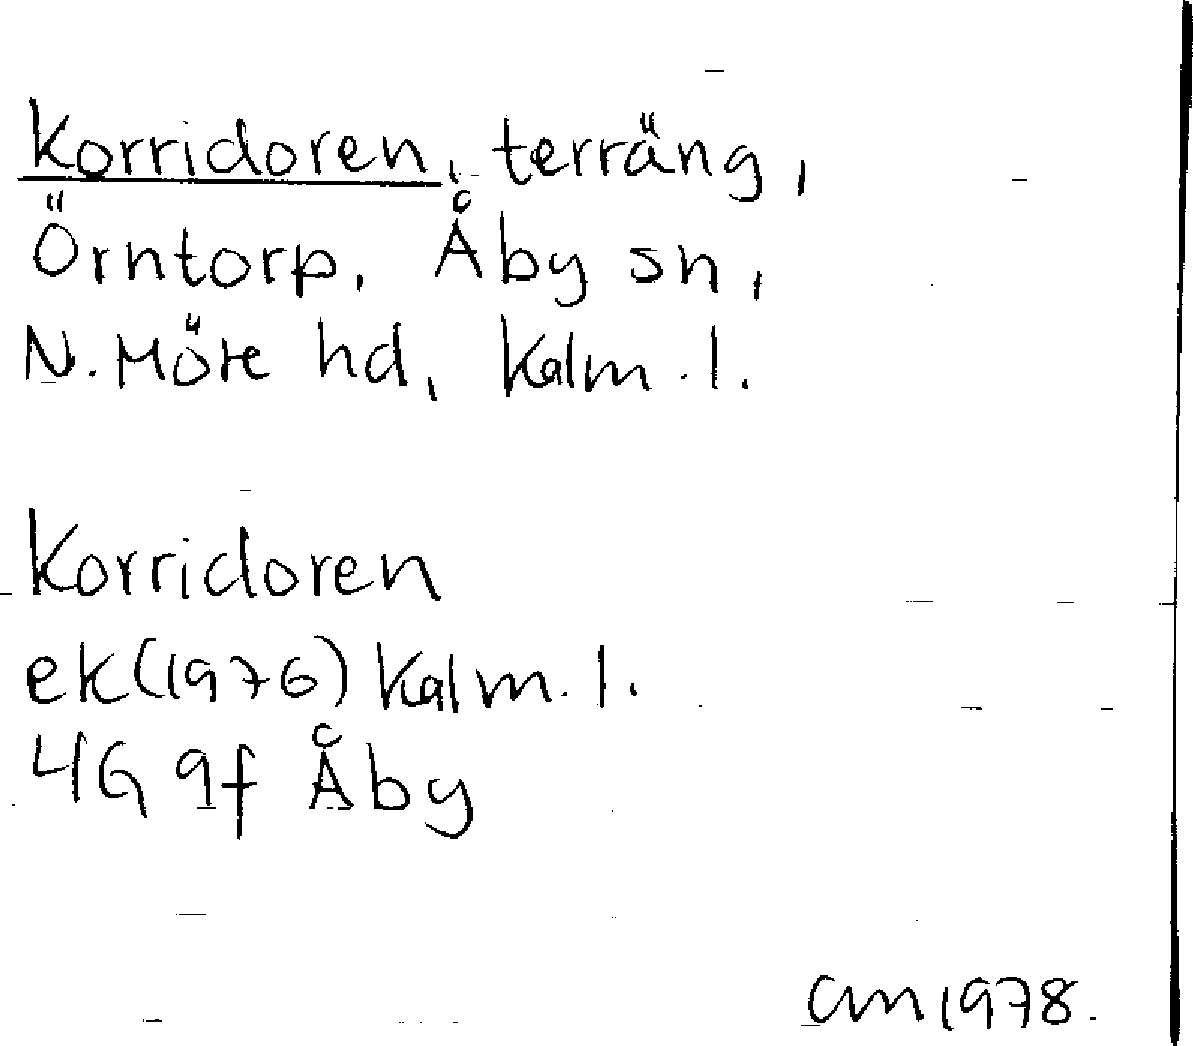 Korridoren, terräng,
Örntorp, Åby sn,
N. Möre hd, Kalm. l.
Korridoren
ek(1976) Kalm. l.
4G 9f Åby
am 1978.